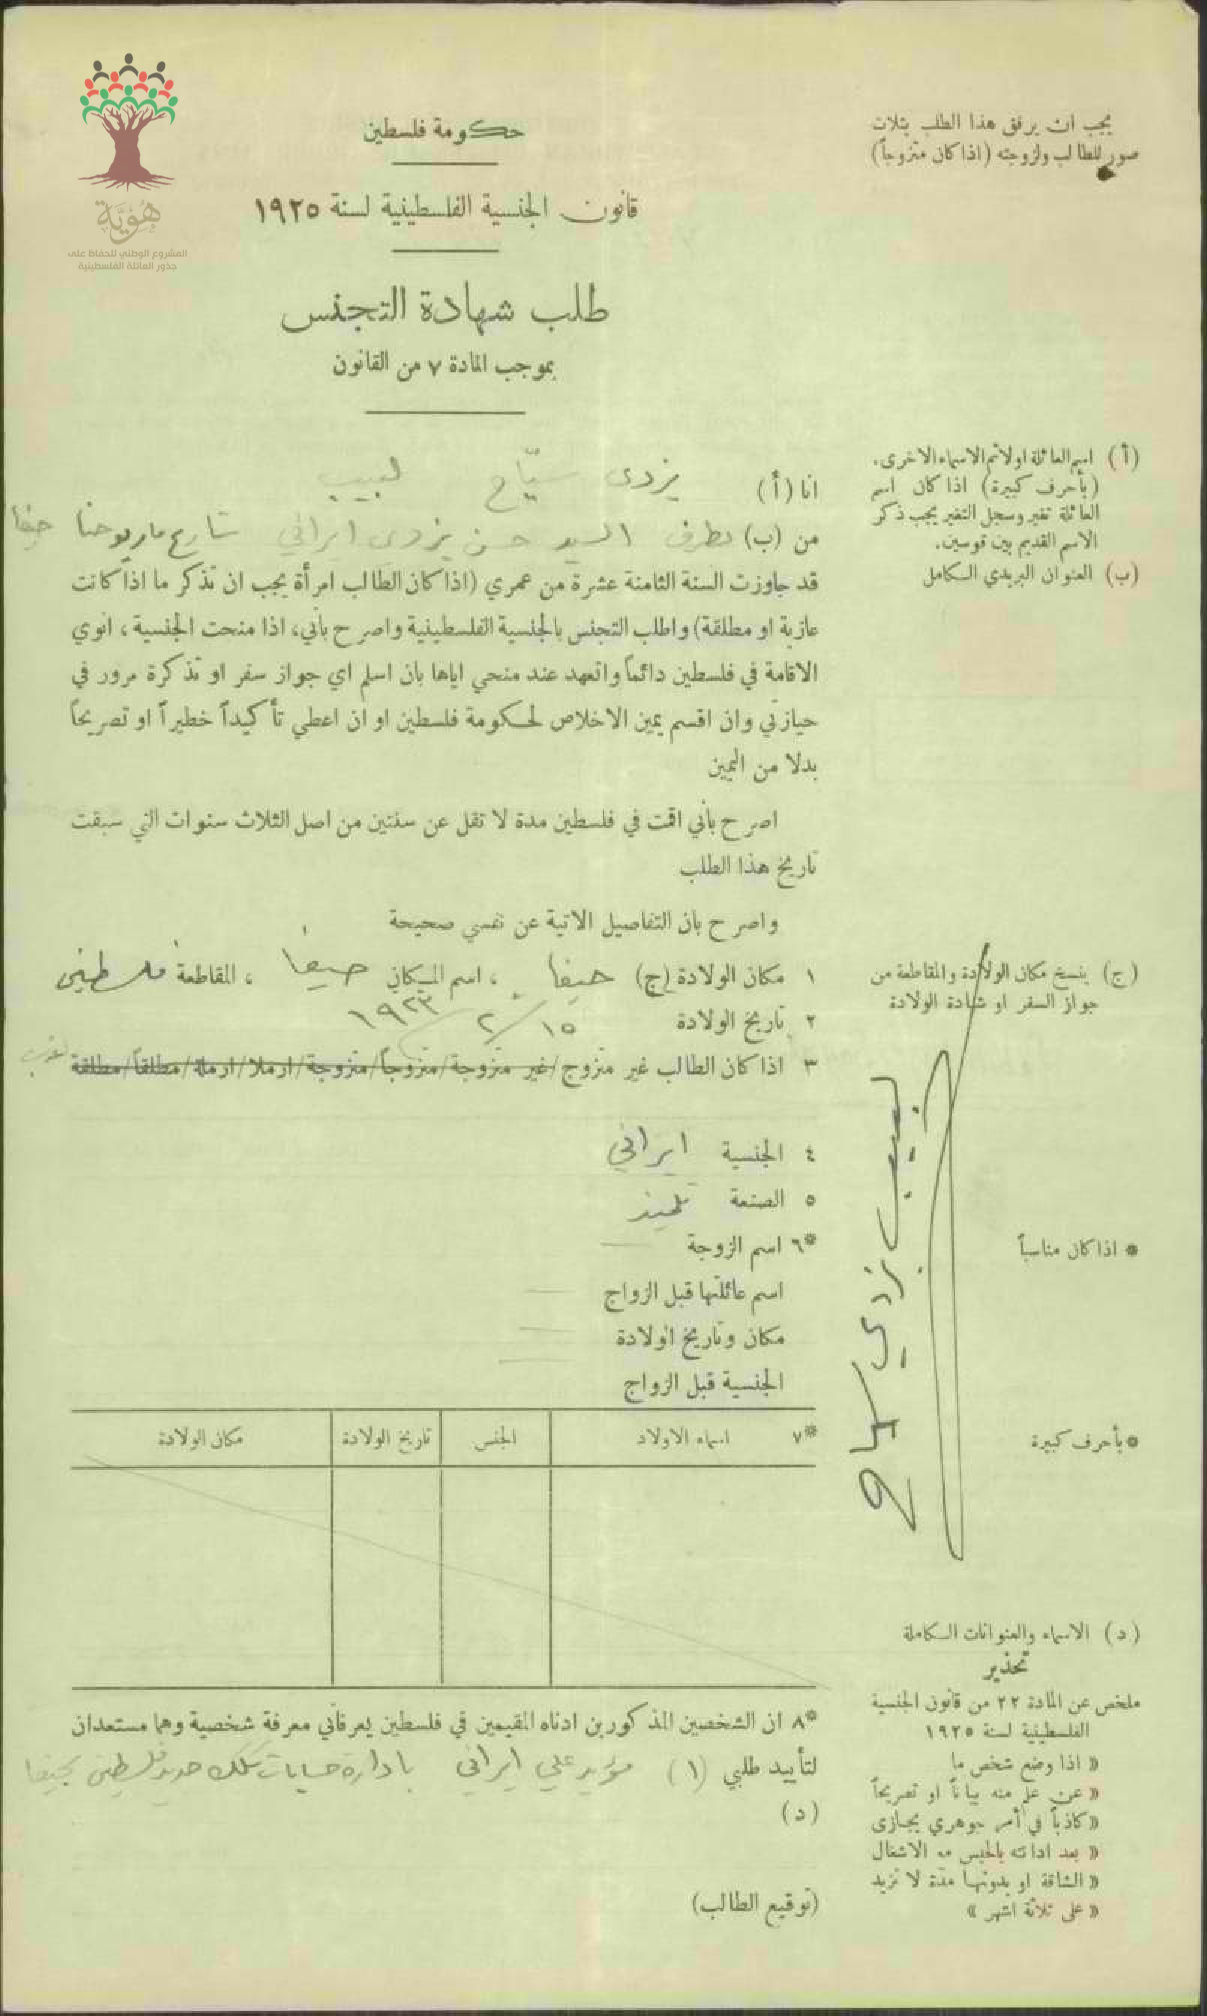 هُوِيَّة
المشروع الوطني للحفاظ على
جذور العائلة الفلسطينية
يجب ان يرفق هذا الطلب بثلاث
صور للطالب ولزوجته (اذا كان متزوجاً)
حكومة فلسطين
قانون الجنسية الفلسطينية لسنة ١٩٢٥
طلب شهادة التجنس
بموجب المادة ٧ من القانون
(أ) اسم العائلة اولا ثم الاسماء الاخرى.
(بأحرف كبيرة) اذا كان اسم
العائلة تغير وسجل التغير يجب ذكر
الاسم القديم بين قوسين.
(ب) العنوان البريدي الكامل
انا (أ) يزدى سيّاح لبيب
من (ب) بطرف السيد حسن يزدى ايراني شارع مار يوحنا حيفا
قد جاوزت السنة الثامنة عشرة من عمري (اذا كان الطالب امرأة يجب ان تذكر ما اذا كانت
عازبة او مطلقة) واطلب التجنس بالجنسية الفلسطينية واصرح بأني، اذا منحت الجنسية، انوي
الاقامة في فلسطين دائماً واتعهد عند منحي اياها بان اسلم اي جواز سفر او تذكرة مرور في
حيازتي وان اقسم يمين الاخلاص لحكومة فلسطين او ان اعطي تأكيداً خطيراً او تصريحاً
بدلا من اليمين
اصرح بأني اقمت في فلسطين مدة لا تقل عن سنتين من اصل الثلاث سنوات التي سبقت
تاريخ هذا الطلب
واصرح بان التفاصيل الاتية عن نفسي صحيحة
(ج) ينسخ مكان الولادة والمقاطعة من
جواز السفر او شهادة الولادة
١ مكان الولادة (ج) حيفا ، اسم المكان حيفا ، المقاطعة فلسطين
٢ تاريخ الولادة ١٥/٢/١٩٢٣
٣ اذا كان الطالب غير متزوج/غير متزوجة/متزوجاً/متزوجة/ارملا/ارملة/مطلقاً/مطلقة
٤ الجنسية ايراني
٥ الصنعة تلميذ
*٦ اسم الزوجة —
اسم عائلتها قبل الزواج —
مكان وتاريخ الولادة —
الجنسية قبل الزواج —
* اذا كان مناسباً
* بأحرف كبيرة
لبيب يزدي
*٧ اسماء الاولاد الجنس تاريخ الولادة مكان الولادة
*٨ ان الشخصين المذكورين ادناه المقيمين في فلسطين يعرفاني معرفة شخصية وهما مستعدان
لتأييد طلبي (١) ايراني بادارة حسابات سكك حديد فلسطين بحيفا
(د)
(توقيع الطالب)
(د) الاسماء والعنوانات الكاملة
تحذير
ملخص عن المادة ٢٢ من قانون الجنسية
الفلسطينية لسنة ١٩٢٥
« اذا وضع شخص ما
« عن علم منه بياناً او تصريحاً
« كاذباً في أمر جوهري يجازى
« بعد ادانته بالحبس مع الاشغال
« الشاقة او بدونها مدة لا تزيد
« على ثلاثة اشهر »